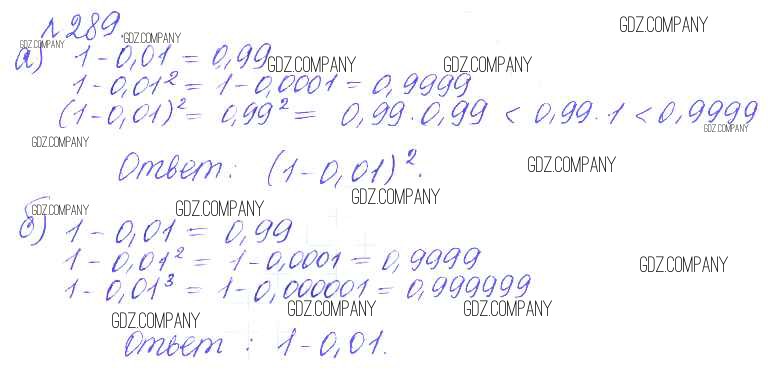 №289.
GDZ.COMPANY
GDZ.COMPANY GDZ.COMPANY
а) 1-0,01=0,99
GDZ.COMPANY GDZ.COMPANY
1-0,01²=1-0,0001=0,9999
(1-0,01)²=0,99²= 0,99·0,99<0,99·1<0,9999
GDZ.COMPANY
GDZ.COMPANY
Ответ: (1-0,01)².
GDZ.COMPANY
GDZ.COMPANY
GDZ.COMPANY GDZ.COMPANY
б) 1-0,01=0,99
1-0,01²=1-0,0001=0,9999
GDZ.COMPANY
1-0,01³=1-0,000001=0,999999
GDZ.COMPANY GDZ.COMPANY GDZ.COMPANY
Ответ: 1-0,01.